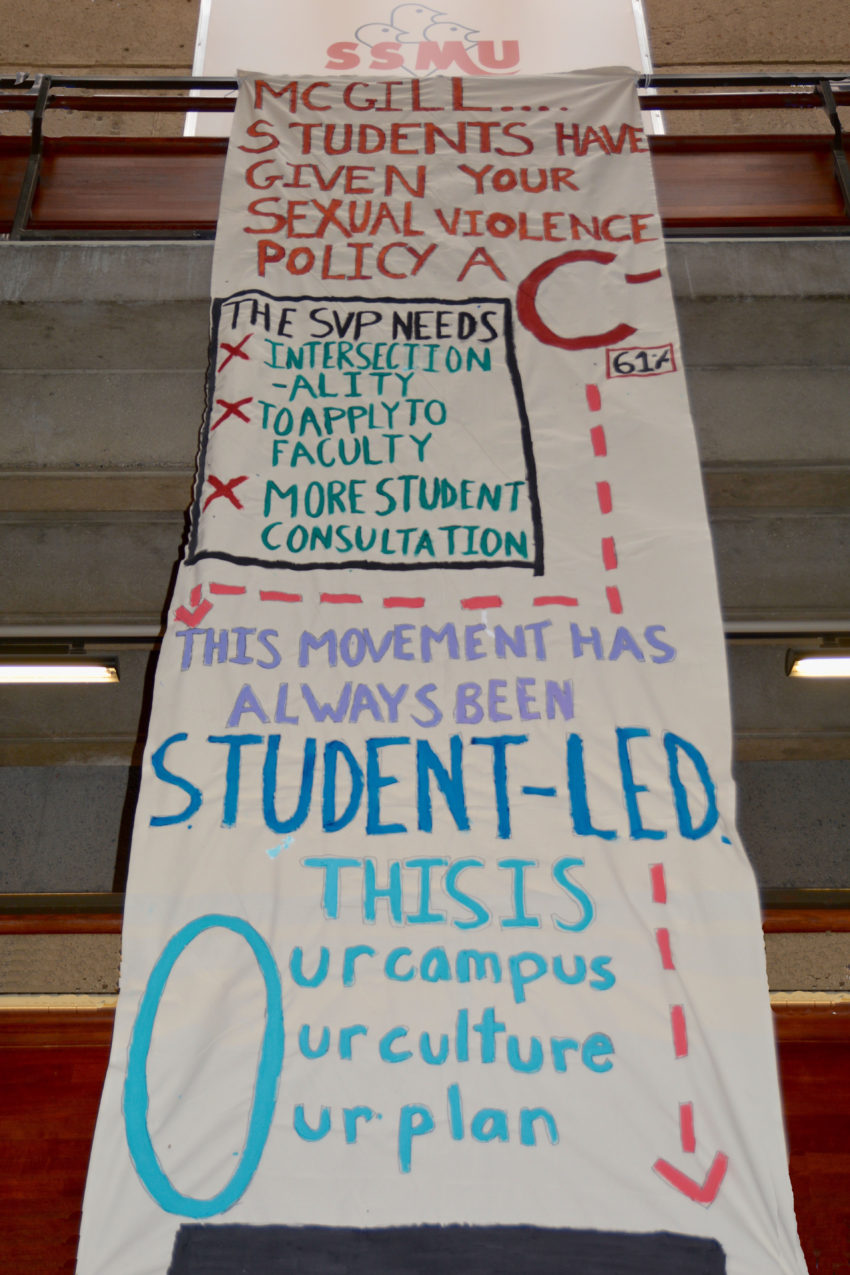 SSMU
MCGILL....
STUDENTS HAVE
GIVEN YOUR
SEXUAL VIOLENCE
POLICY A C-
61%
THE SVP NEEDS
X INTERSECTION
-ALITY
X TO APPLY TO
FACULTY
X MORE STUDENT
CONSULTATION
THIS MOVEMENT HAS
ALWAYS BEEN
STUDENT-LED.
THIS IS
Our campus
ur culture
ur plan